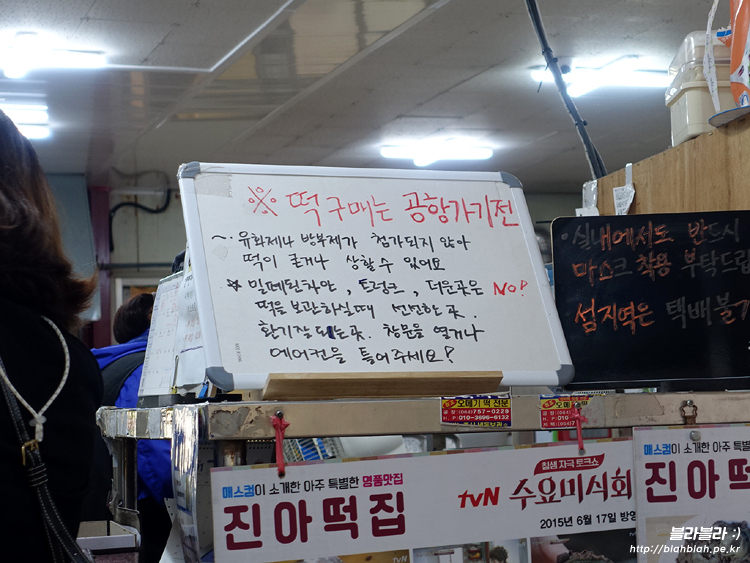 ※ 떡 구매는 공항가기전
~. 유화제나 방부제가 첨가되지 않아
떡이 굳거나 상할 수 있어요
☆ 밀폐된차안, 트렁크, 더운곳은 NO!
떡을 보관하실때 선선한곳.
환기잘되는곳. 창문을 열거나
에어컨을 틀어주세요!
실내에서도 반드시
마스크 착용 부탁드립
섬지역은 택배불가
오메기 떡 전문
757-0229
H.P 010-3696-6132
매스컴이 소개한 아주 특별한 명품맛집
진아떡집
tvN
칠생 자극 토크스
수요미식회
2015년 6월 17일 방영
매스컴이 소개한 아주 특
진아떡
블라블라 :)
http://blahblah.pe.kr